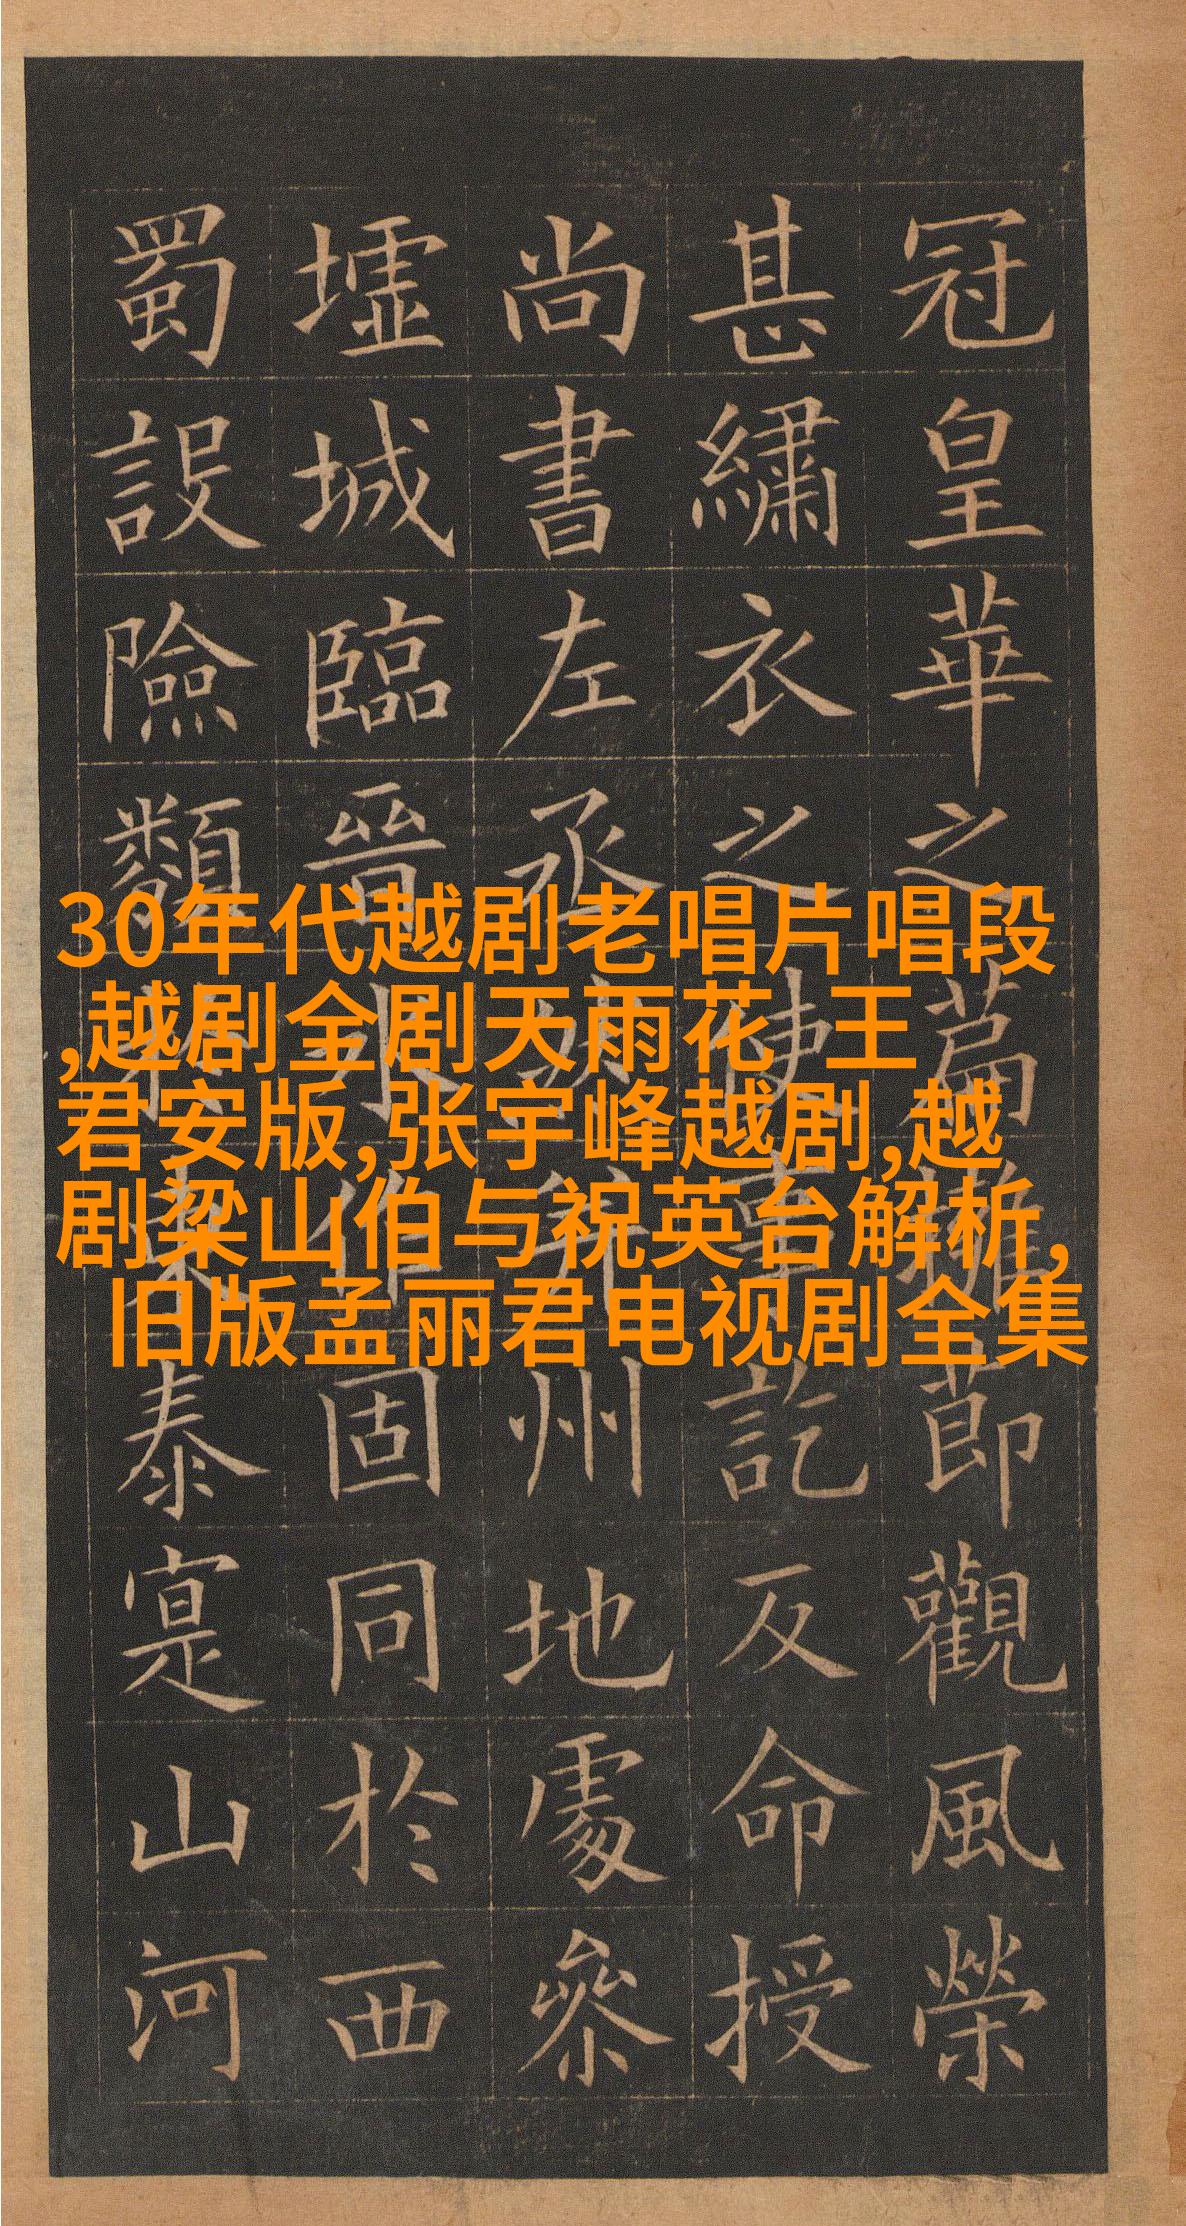 冠皇華之篇雖節觀風榮
甚繡衣之使事訖反命授
尚書左丞州地處參
墟城臨晉水作固同於西
蜀設險類東泰寔山河
30年代越剧老唱片唱段
,越剧全剧天雨花 王
君安版,张宇峰越剧,越
剧梁山伯与祝英台解析,
旧版孟丽君电视剧全集